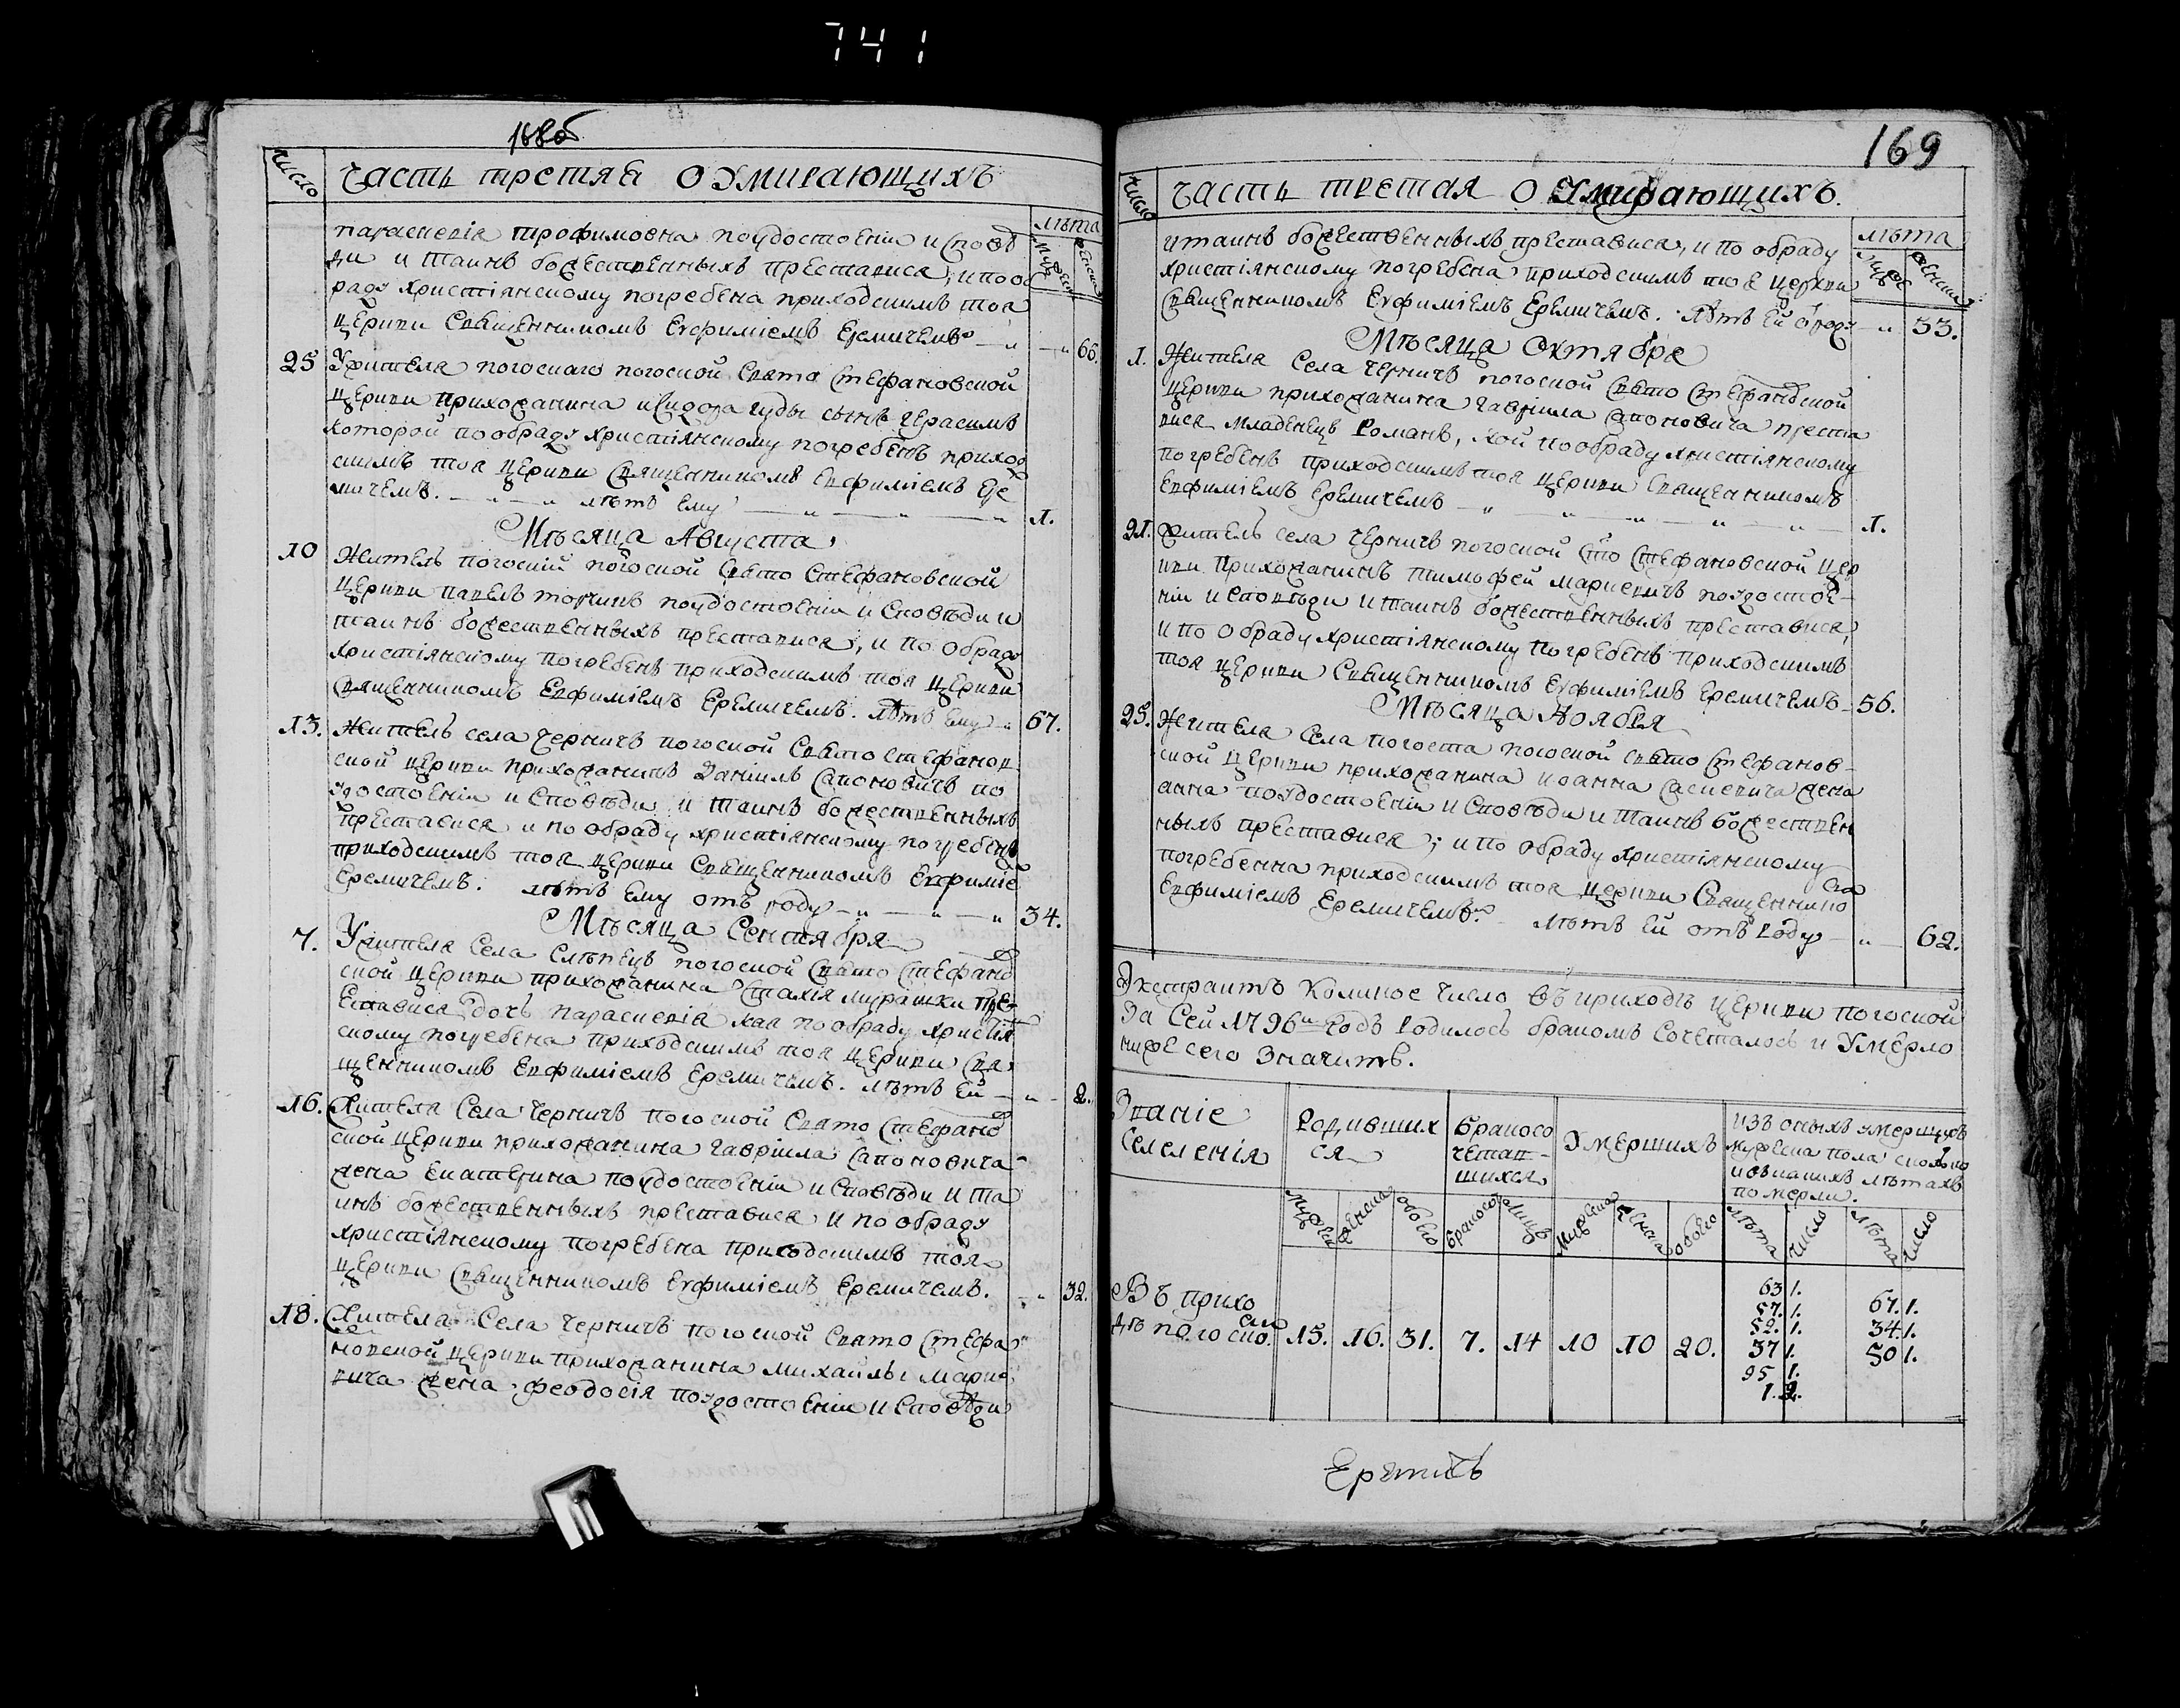 741
168об
число
часть третяя о умирающихъ
лѣта
муж женска
параскевія трофимовна поудостоеніи исповѣ
ди и таинъ божественныхъ преставися, и по об
раду христіянскому погребена приходскимъ тоя
церкви Священникомъ Евфиміемъ Еремичемъ 66.
25 Жителя погоскаго погоской Свято Стефановской
церкви прихожанина исидора гуды сынъ герасимъ
которой пообраду христіянскому погребенъ приход
скимъ тоя церкви Священникомъ Евфиміемъ Ере
мичемъ. лѣтъ ему 1.
Мѣсяца Августа
10 Житель погоскій погоской Свято Стефановской
церкви павелъ торчинъ поудостоеніи исповѣди и
таинъ божественныхъ преставися, и по обраду
христіянскому погребенъ приходскимъ тоя церкви
Священникомъ Евфиміемъ Еремичемъ. лѣтъ ему 67.
13. Житель села Черничъ погоской Свято Стефанов
ской церкви прихожанинъ Даніилъ Сапоновичъ по
удостоеніи исповѣди и таинъ божественныхъ
преставися и по обраду христіянскому погребенъ
приходскимъ тоя церкви Священникомъ Евфиміе
Еремичемъ. лѣтъ ему отъ роду 34.
Мѣсяца Сентября
7. Жителя Села Слѣпецъ погоской Свято Стефанов
ской церкви прихожанина Стахія мурашки пре
ставися дочь параскевія кая по обраду христіян
скому погребена приходскимъ тоя церкви Свя
щенникомъ Евфиміемъ Еремичемъ. лѣтъ ей 2.
16. Жителя Села Черничъ погоской Свято Стефанов
ской церкви прихожанина гавріила Сапоновича
жена Екатерина поудостоеніи исповѣди и та
инъ божественныхъ преставися и по обраду
христіянскому погребена приходскимъ тоя
церкви Священникомъ Евфиміемъ Еремичемъ. 32.
18. Жителя Села Черничъ погоской Свято Стефа
новской церкви прихожанина михайлы марке
вича жена феодосія поудостоеніи исповѣди
169
число
часть третая о умирающихъ.
лѣта
муже женска
и таинъ божественныхъ преставися, и по обраду
христіянскому погребена приходскимъ тоя церкви
Священникомъ Евфиміемъ Еремичемъ. лѣтъ ей отроду 53.
Мѣсяца Октября
1. Жителя Села Черничъ погоской Свято Стефановской
церкви прихожанина гавріила Сапоновича преста
вися младенецъ Романъ, кой пообраду христіянскому
погребенъ приходскимъ тоя церкви Священникомъ
Евфиміемъ Еремичемъ 1.
21. Житель села Черничъ погоской Сто Стефановской цер
кви прихожанинъ тимофей маркевичъ поудостое
ніи исповѣди и таинъ божественныхъ преставися,
и по обраду христіянскому погребенъ приходскимъ
тоя церкви Священникомъ Евфиміемъ Еремичемъ 56.
Мѣсяца Ноября
25. Жителя Села погоста погоской Свято Стефанов
ской церкви прихожанина иоанна Саскевича жена
анна поудостоеніи исповѣди и таинъ божествен
ныхъ преставися; и по обраду христіянскому
погребенна приходскимъ тоя церкви Священнико
Евфиміемъ Еремичемъ. лѣтъ ей отъ роду 62.
Экстрактъ Коликое число въ приходѣ церкви погоской
За Сей 1796й годъ Родилось бракомъ Сочеталось и Умерло
ниже сего Значитъ.
Званіе Селенія
Родивших ся
Бракосо четав шихся
Умершихъ
изъ оныхъ умершихъ
мужеска пола сколко
и въ какихъ лѣтахъ
померли.
мужска женска обоего бракосо лицъ мужска женска обоего лѣта число лѣта число
Въ прихо
дѣ погоско. 15. 16. 31. 7. 14 10 10 20.
63 1.
57. 1.
52. 1.
37 1.
95 1.
1. 2.
67. 1.
34 1.
50 1.
Еремичъ